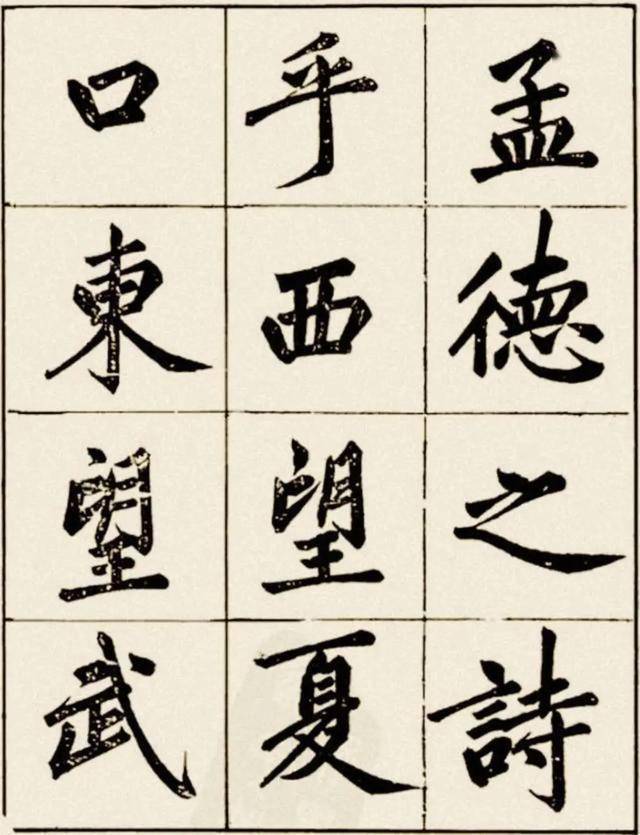 孟德之詩
乎西望夏
口東望武